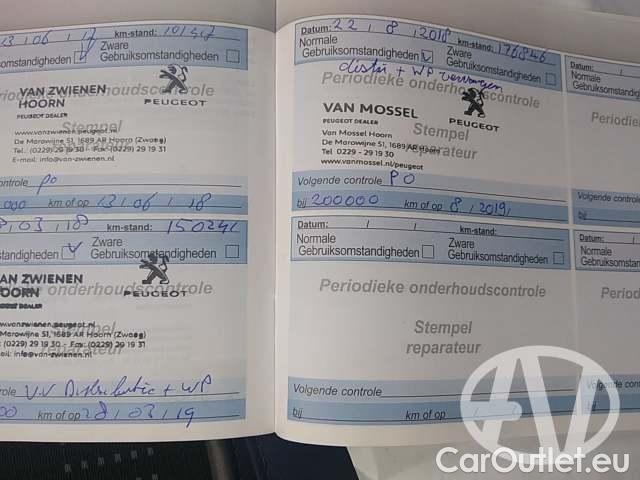 13/06/17 km-stand:
Zware
Gebruiksomstandigheden
VAN ZWIENEN
HOORN
PEUGEOT DEALER
PEUGEOT
www.vanzwienen.peugeot.nl
De Marowijne 51, 1689 AR Hoorn (Zwaag)
Tel. (0229) 29 19 30 - Fax (0229) 29 19 31
E-mail: info@van-zwienen.nl
Stempel
PO
km of op 13/06/18
03/18 km-stand:
Zware
Gebruiksomstandigheden
AN ZWIENEN
HOORN
PEUGEOT DEALER
PEUGEOT
Periodieke onderhoudscontrole
Stempel
reparateur
Marowijne 51, 1689 AR Hoorn (Zwaag)
(0229) 29 19 30 - Fax (0229) 29 19 31
info@van-zwienen.nl
V.V Distributie + WP
km of op 28/03/19
Datum: 22/8/2018 km-stand: 176846
Normale
Gebruiksomstandigheden
Zware
Gebruiksomstandigheden
distri + WP vervangen
Periodieke onderhoudscontrole
VAN MOSSEL
PEUGEOT DEALER
PEUGEOT
Stempel
reparateur
Van Mossel Hoorn
De Marowijne 51, 1689 AR Hoorn
Tel 0229 - 29 19 30
www.vanmossel.nl/peugeot
Volgende controle PO
bij 200000 km of op 8/2019
Datum: / / km-stand:
Normale
Gebruiksomstandigheden
Zware
Gebruiksomstandigheden
Periodieke onderhoudscontrole
Stempel
reparateur
Volgende controle
bij km of op / /
Datum:
Normale
Gebruiksomstandigheden
Periodie
Volgende controle
bij
Datum:
Normale
Gebruiksomstand
Periodi
Volgende
bij
CarOutlet.eu